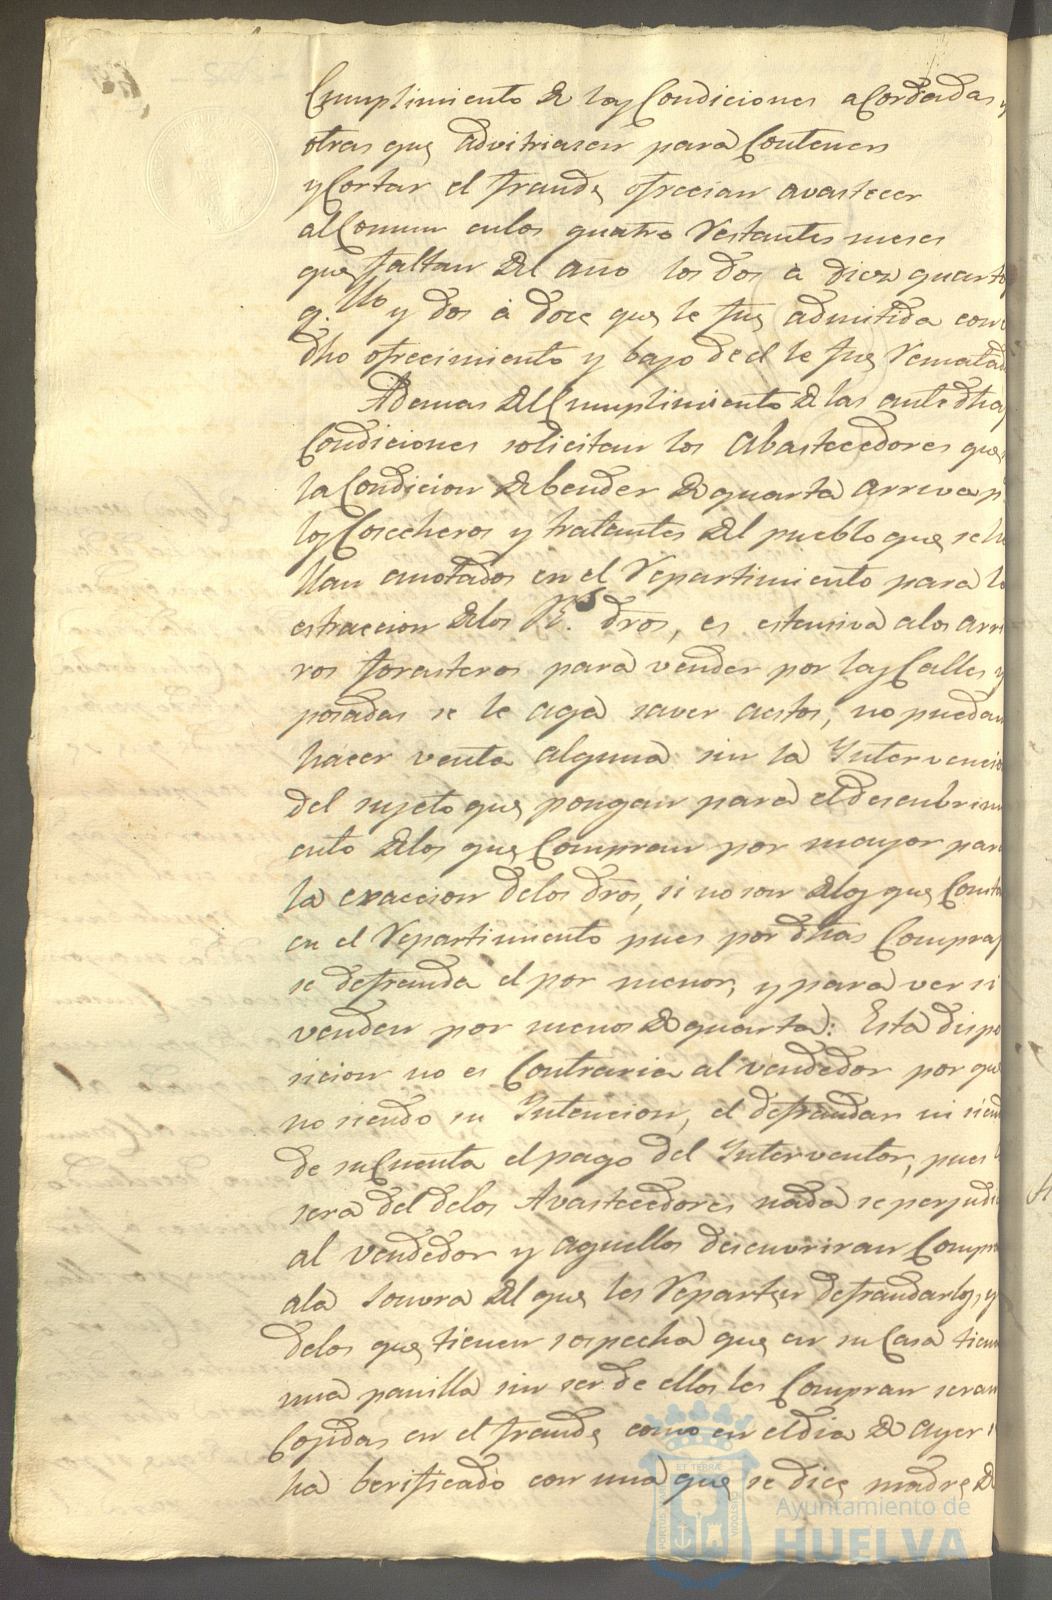 Cumplimiento de las Condiciones aCordadas y
otras que advitriasen para Contener
y Cortar el fraude ofrecian avastecer
al Comun en los quatro restantes meses
que faltan del año los dos à diez quartos
q.llo y dos à doce que le fue admitida con
dho ofrecimiento y bajo de el le fue remata
Ademas del Cumplimiento de las antedhas
Condiciones solicitan los Abastecedores que
la Condicion de bender de quarta arriva p
los Cosecheros y tratantes del pueblo que se ha
llan anotados en el repartimiento para la
estraccion de los R.s dros, es estensiva a los arri
ros forasteros para vender por las Calles y
posadas se le aga saver aestos, no puedan
hacer venta alguna sin la Intervencio
del sujeto que pongan para el descubrim
ento de los que Compran por mayor para
la exaccion de los dros, si no son de los que Consta
en el repartimiento pues por dhas Compras
se defrauda el por menor, y para ver si
venden por menos de quarta: Esta dispo
sicion no es Contraria al vendedor por que
no siendo su Intencion, el defraudar ni siend
de su Cuenta el pago del Interventor, pues
sera del de los Avastecedores nada se perjudi
al vendedor y aquellos descuvriran Compra
ala sonvra del que les reparten defraudarlos, y
de los que tienen sospecha que en su Casa tienen
una panilla sin ser de ellos les Compran seran
Cojidas en el fraude como en el dia de ayer s
ha berificado con una que se dice madre de
ET TERRÆ
PORTUS MARIS
CUSTODIA
Ayuntamiento de
HUELVA